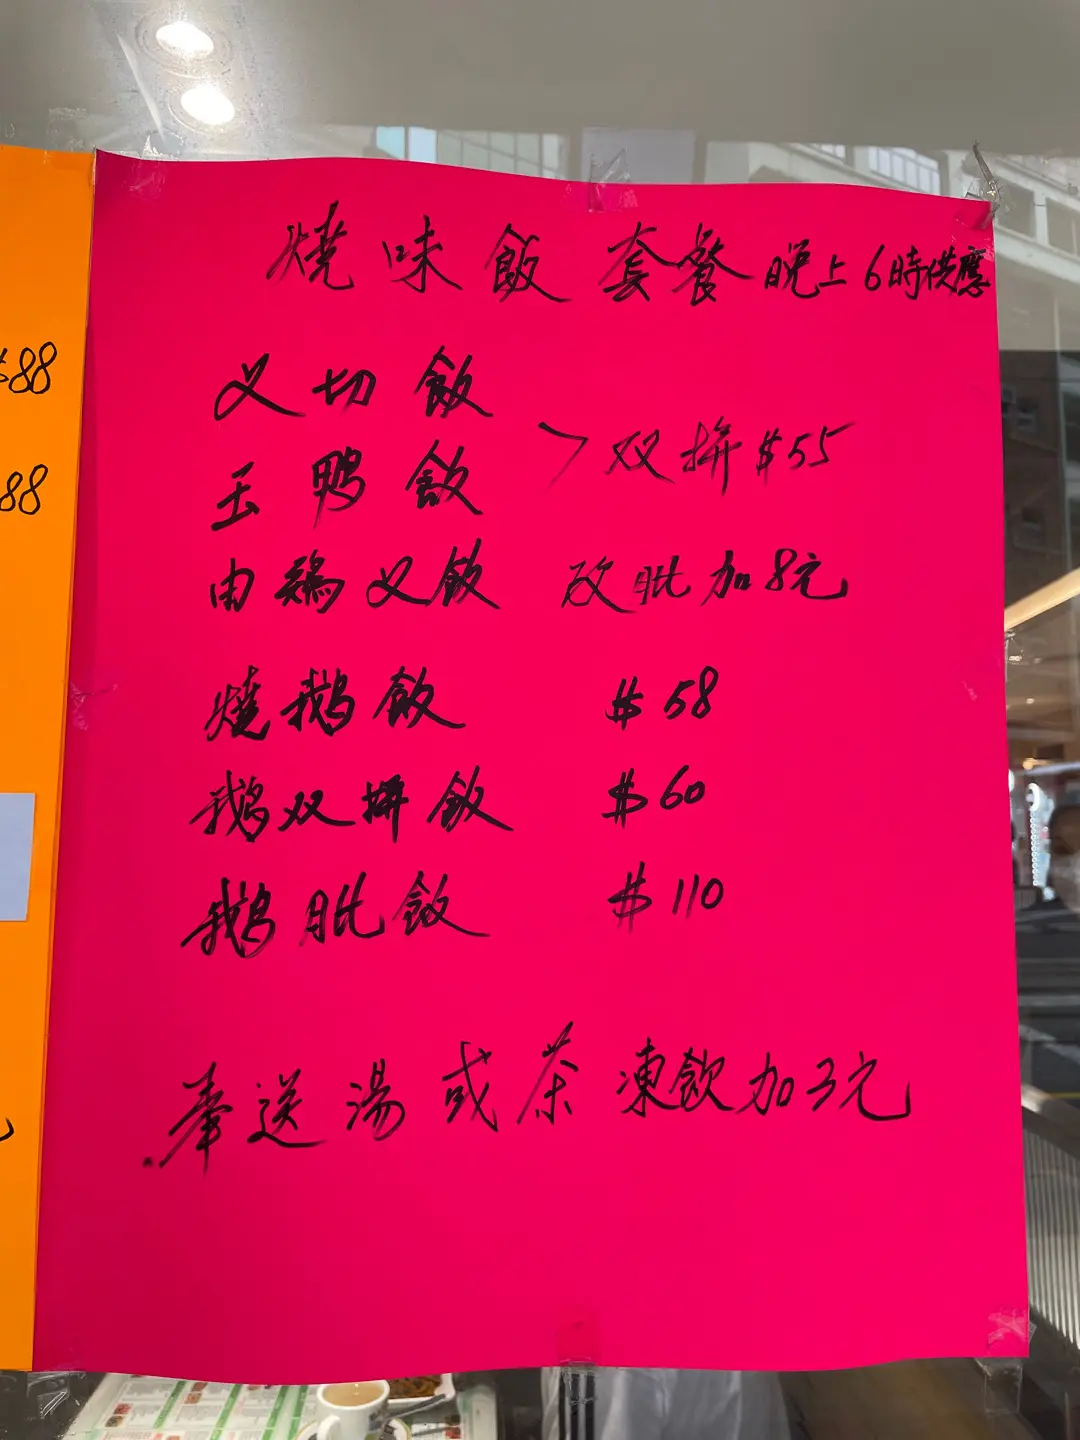 $88
88
燒味飯 套餐 晚上6時供應
义切飯
玉鸭飯
>双拼$55
由鷄义飯 改肶加8元
燒鹅飯 $58
鹅双拼飯 $60
鹅肶飯 $110
奉送湯或茶 凍飲加3元